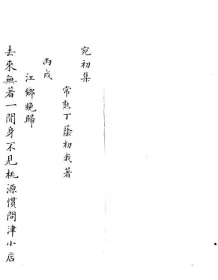 宛初集
常熟丁蔭初我著
丙戌
江鄉晚歸
去來無著一閒身不見桃源慣問津小店